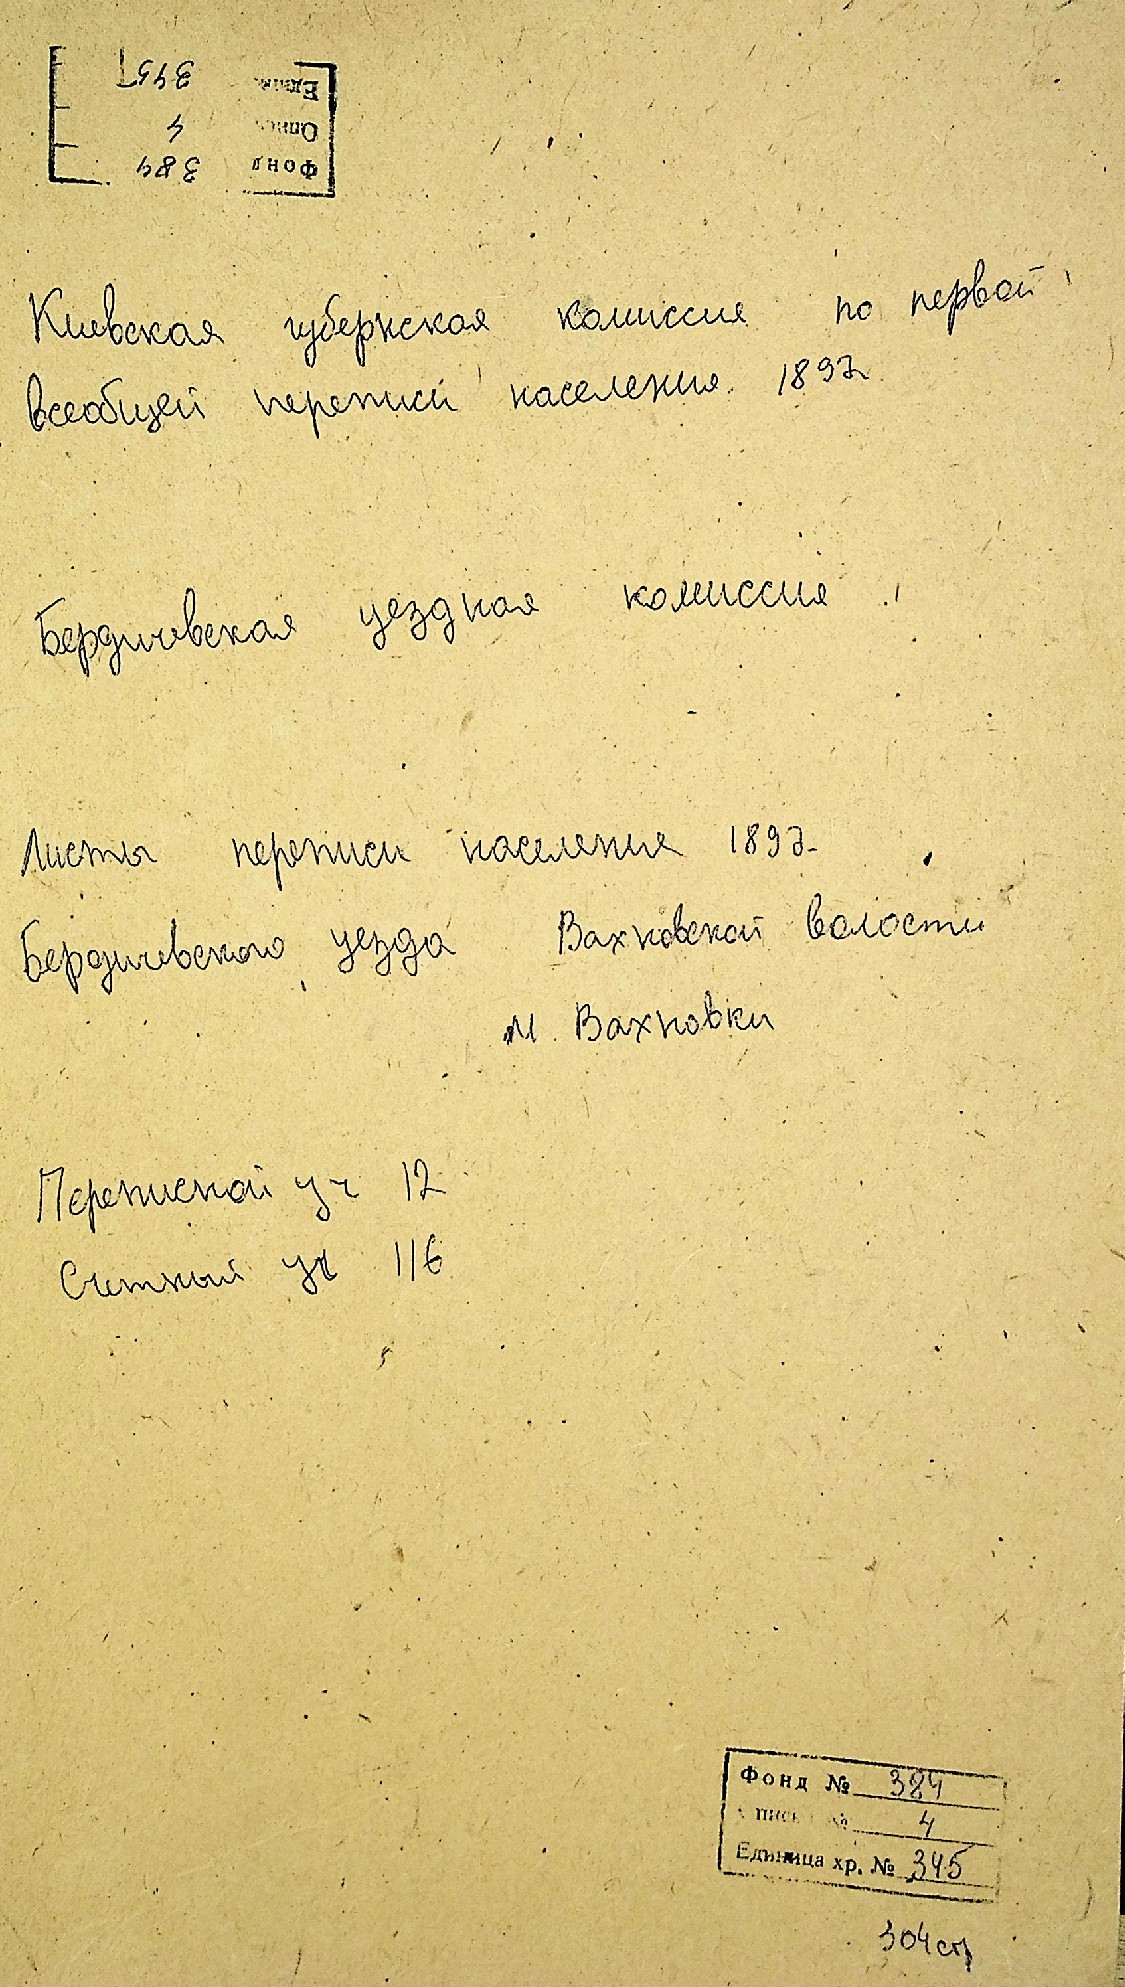 Един. 345
Опись 4
Фонд 384
Киевская губернская комиссия по первой
всеобщей переписи населения 1897г.
Бердичевская уездная комиссия
Листы переписи населения 1897г.
Бердичевского уезда Вахновской волости
м. Вахновки
Переписной уч 12
Счетный уч 116
Фонд № 384
пись № 4
Единица хр. № 345
304 ст